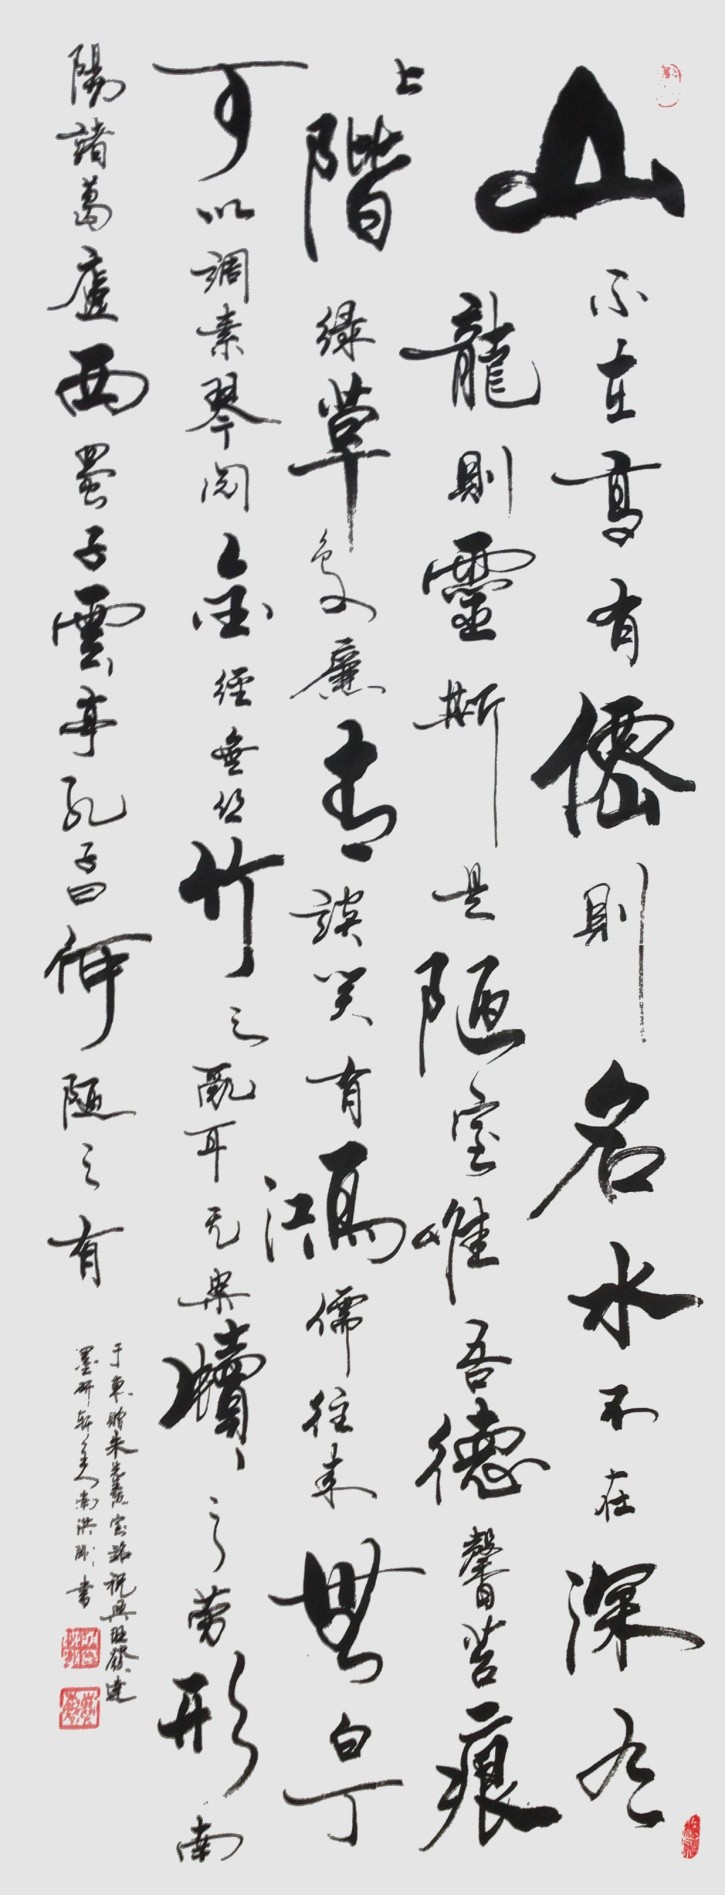 山不在高有僊則名水不在深有
龍則靈斯是陋室唯吾德馨苔痕
上階綠草色入廉青談笑有鴻儒往來無白丁
可以調素琴閱金經無絲竹之亂耳无案牘之勞形南
陽諸葛廬西蜀子雲亭孔子曰何陋之有
室銘祝興旺發達
墨研軒主人南洪書